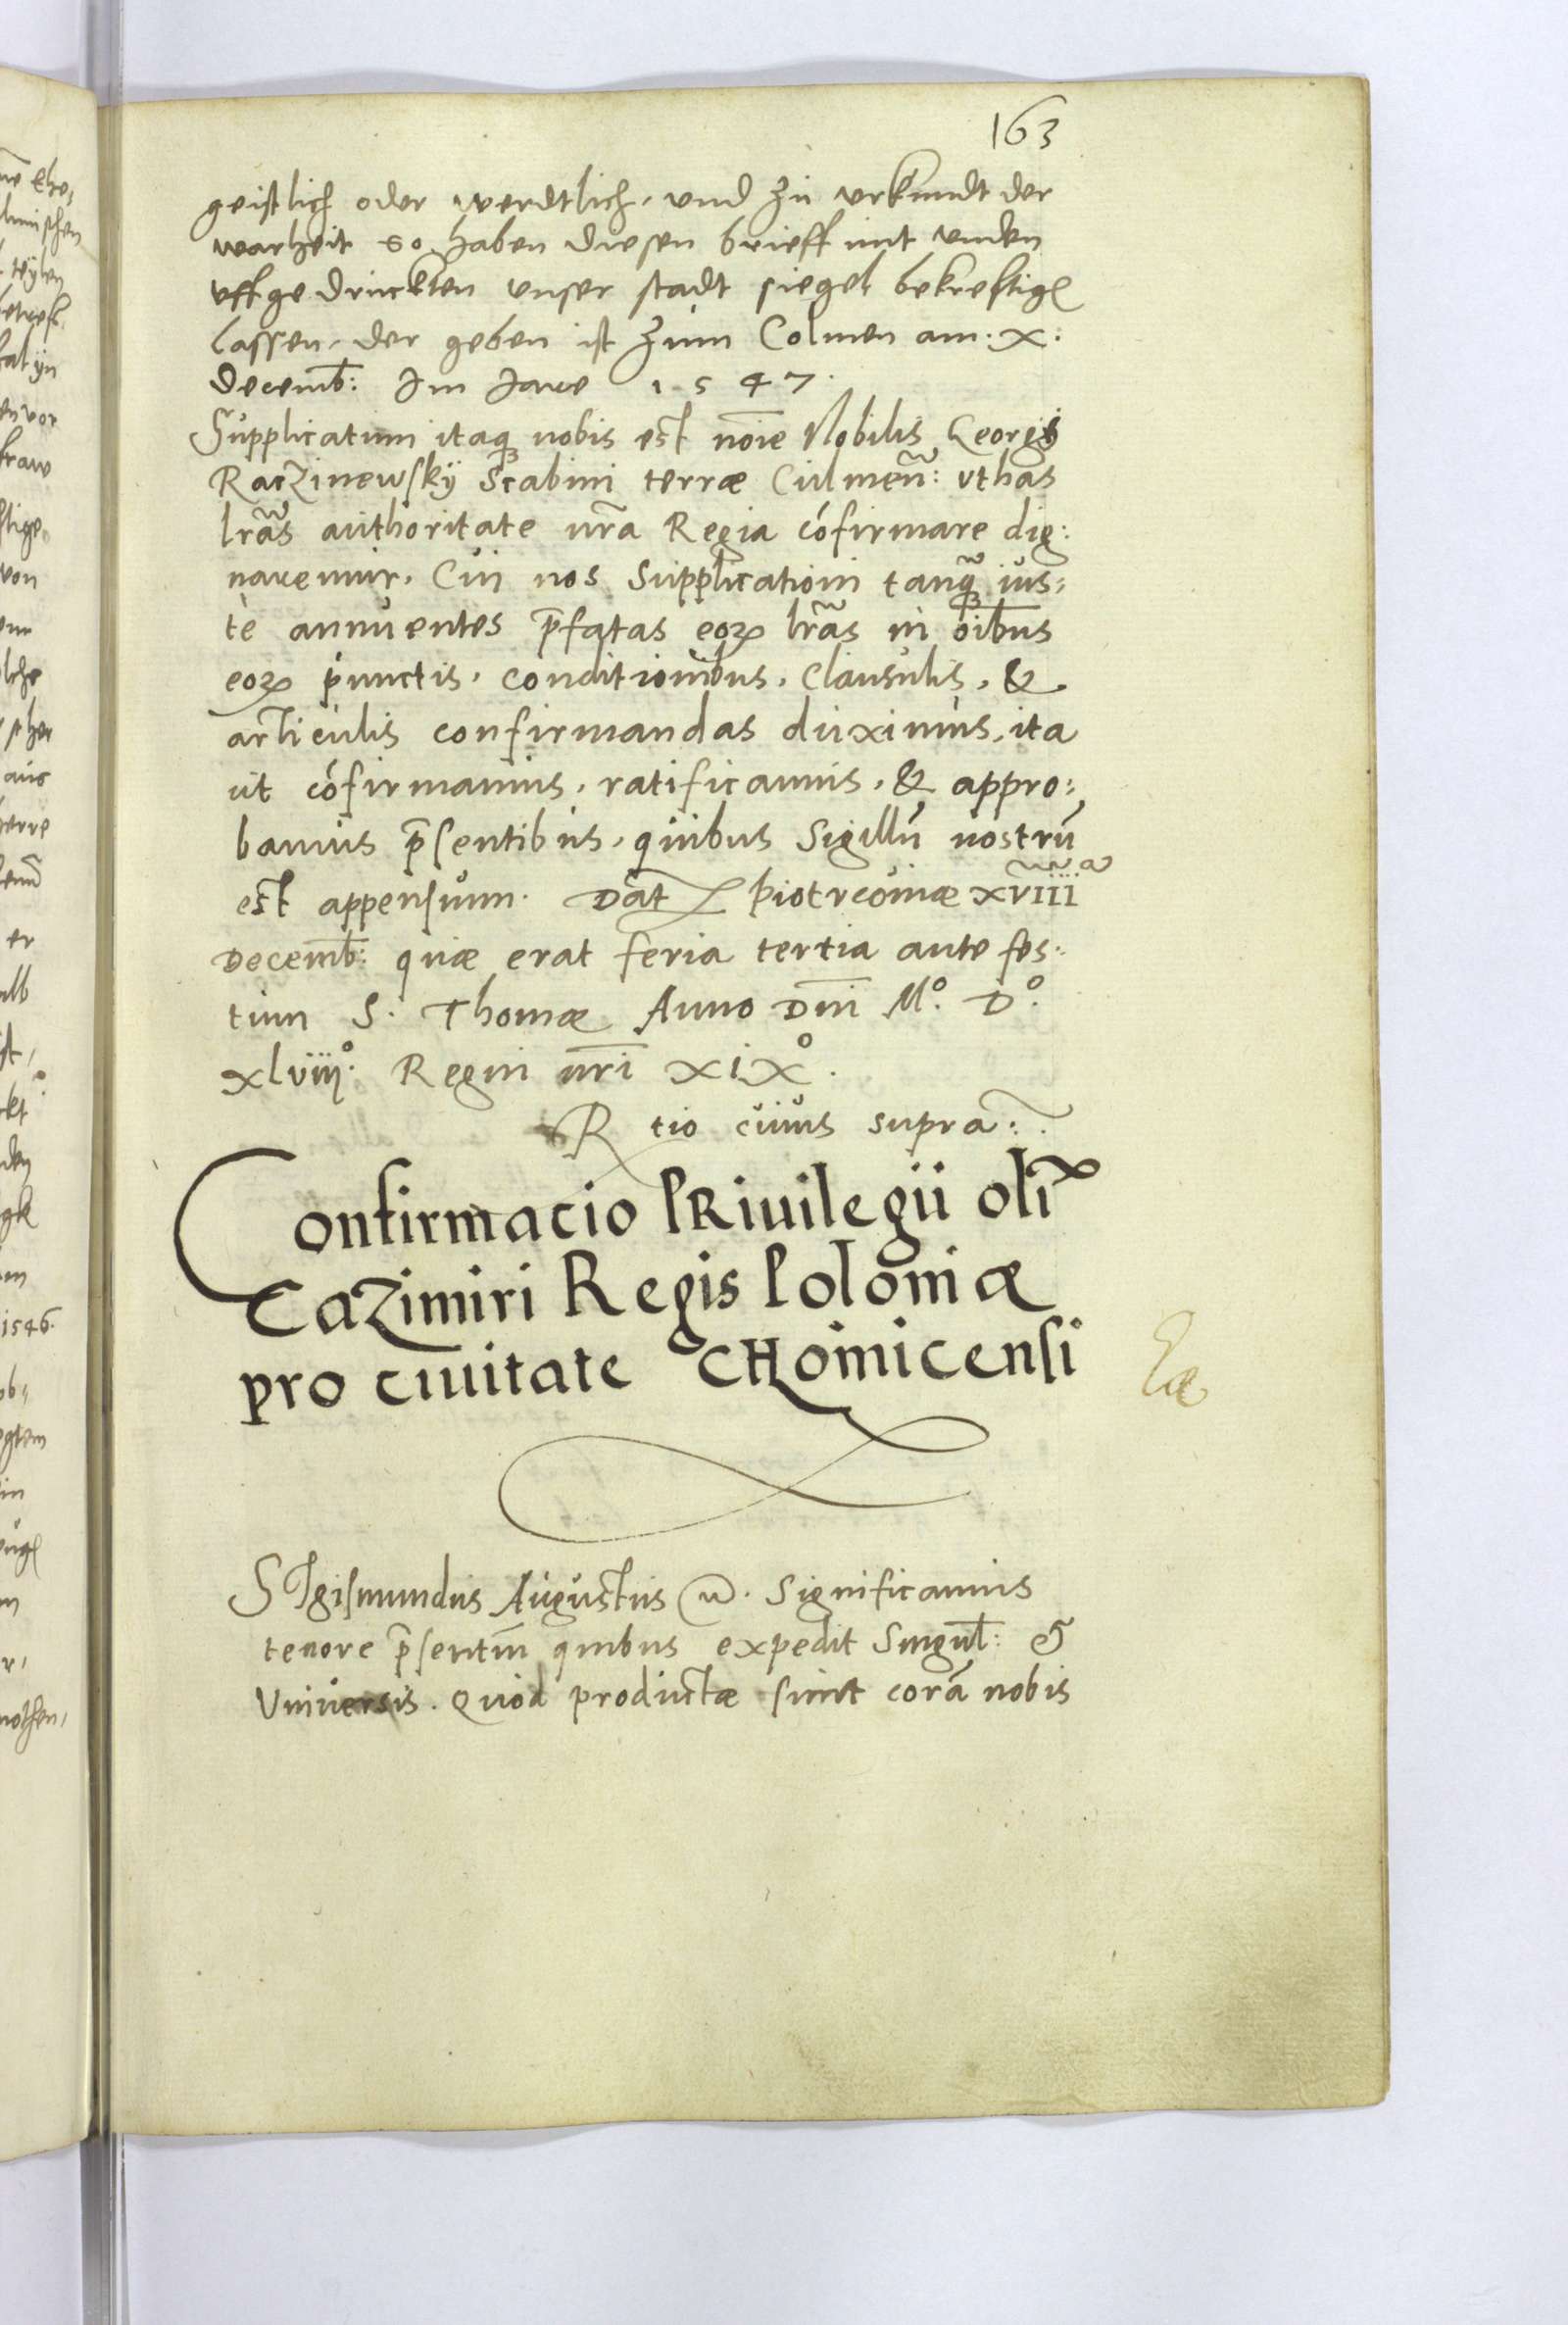 163
geistlich oder werdtlich, und zu urkundt der
warheit so haben diesen brieff mit unden
uffgedruckten unser stadt siegel bekrefftige
lassen, der geben ist zum Colmen am .x.
Decemb: Im Jare 1547.
Supplicatum itaq₃ nobis est noīe Nobilis Georgii
Raczinewskÿ Scabini terræ Culmeñ: ut has
lr̃as authoritate nr̃a Regia cōfirmare dig:
naremur. Cui nos supplicationi tanq̃₃ ius:
te annuentes p̄fatas eoꝝ lr̃as in oībus
eoꝝ punctis, conditionibus, clausulis, &
articulis confirmandas duximus, ita
ut cōfirmamus, ratificamus, & appro:
bamus p̄sentibus, quibus Sigillū nostrū
est appensum. Dat Piotrcoviæ xviii
Decemb: quæ erat feria tertia ante fes:
tum S. Thomæ Anno Dm̄i M°. D°.
xlviij°. Regni nr̄i xix°.
R tio cuius supra.
Confirmacio PRivilegii oli
Cazimiri Regis Poloniæ
pro civitate CHoinicensi
SIgismundus Augustus Significamus
tenore p̄sentiū quibus expedit Singul: &
Universis. Quod productæ sunt corā nobis
1546.